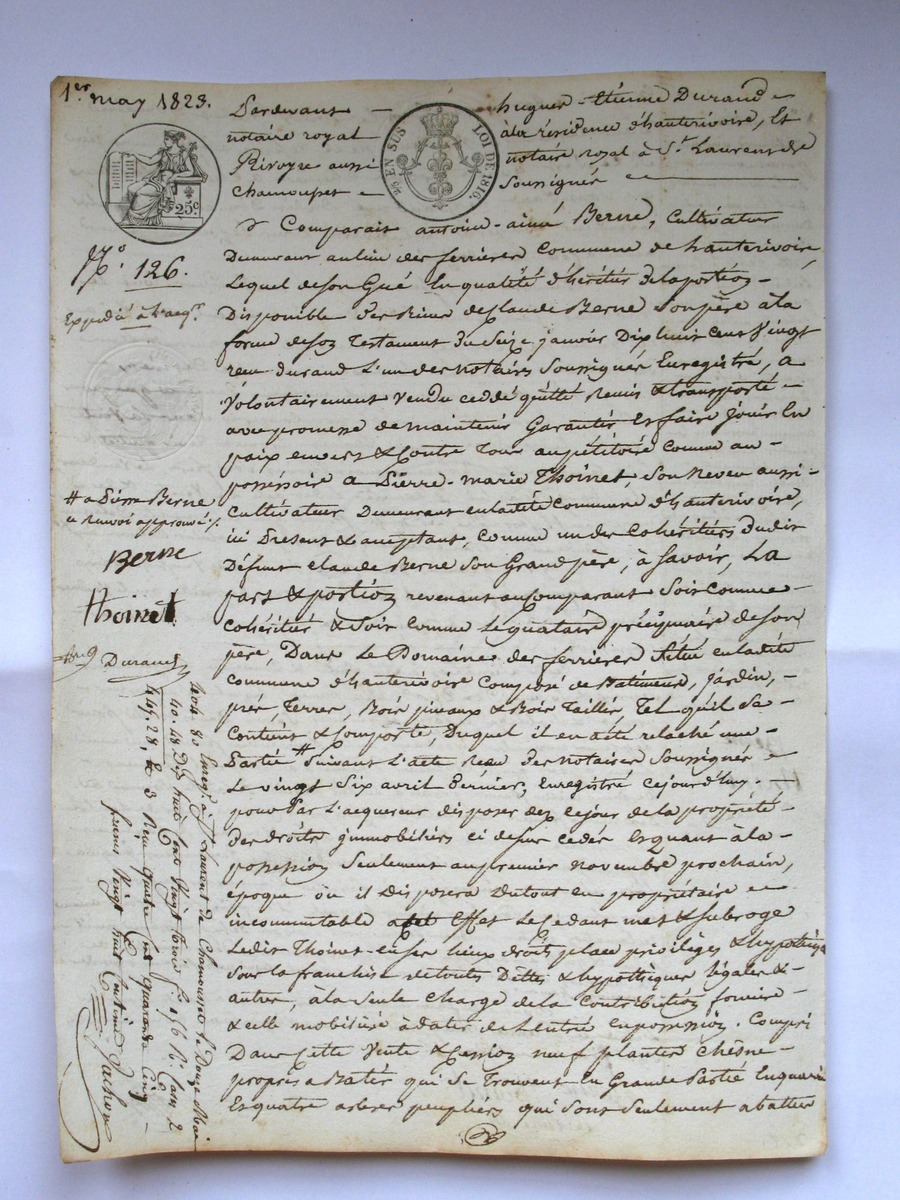 1er may 1823.
Pardevant – hugues-Etienne Durand –
notaire royal à la résidence d'hauterivoire, Et
Rivoyre aussi notaire royal à St Laurent de
Chamousset – Soussignés –
EN SUS LOI DE 1816.
25c
Comparait antoine-aimé Berne, Cultivateur
Demeurant au lieu des ferrieres Commune de hauterivoire,
Lequel de son Gré En qualité d'héritier De la portion –
Disponible Des Biens de Claude Berne Son père à la
forme de son Testament du Seize janvier Dix huit Cent Vingt
reçu durand L'un des notaires Soussignés Enregistré, a
Volontairement Vendu ceddé quitté Remis & transporté –
avec promesse de maintenir Garantir Et faire Jouir En
paix envers & Contre Tous au pétitoire comme au –
possessoire a Pierre-marie Thoinet, Son Neveu aussi –
Cultivateur Demeurant en ladite Commune d'hauterivoire,
ici Present & acceptant, Comme un des Cohéritiers Dudit
Défunt Claude Berne Son Grand père, à Savoir, La
part & portion revenant au Comparant Soit Comme –
Cohéritier & Soit Comme Légataire préciputaire de son
père, Dans Le Domaine des ferrieres Situé en ladite
Commune d'hauterivoire Composé de Batiments, Jardin, –
prés, Terres, Bois pinaux & Bois Taillis Tel qu'il Se –
Contient & Comporte, Duquel il en a été relaché une –
Partie # Suivant L'acte Reçu des notaires Soussignés –
Le vingt Six avril Dernier, Enregistré cejourd'huy. –
pour Par L'acquereur disposer dès cejour de la propriété –
Des droits immobiliers ci dessus cédés Et quant à la –
possession Seulement au premier novembre prochain,
époque où il Disposera Du tout en propriétaire –
incommutable a cet Effet Le Cedant met & Subroge
Ledit Thoinet En Ses lieux droits place privilèges & hypothèques
Sous la franchise de touts Dettes & hypothèques légales & –
autres, à la Seule Charge de la Contribution foncière –
& celle mobilière à dater de L'entrée en possession. Compris
Dans Cette Vente & Cession neuf plantes Chêne –
propres a Batir qui Se Trouvent En Grande Partie Enquarris
Et quatre arbres peupliers qui Sont Seulement abattus
No. 126.
Expédié à l'acqr.
# a Pierre Berne
ce Renvoi approuvé %.
Berne
Thoinet
Durand
404 80 Enregé à St Laurent de Chamousset le Douze Mai
40. 48 Dix huit Cent Vingt trois fo 156 Ro Case 2
445. 28. Reçu quatre Cent quarante Cinq
francs Vingt huit Centimes Pachon